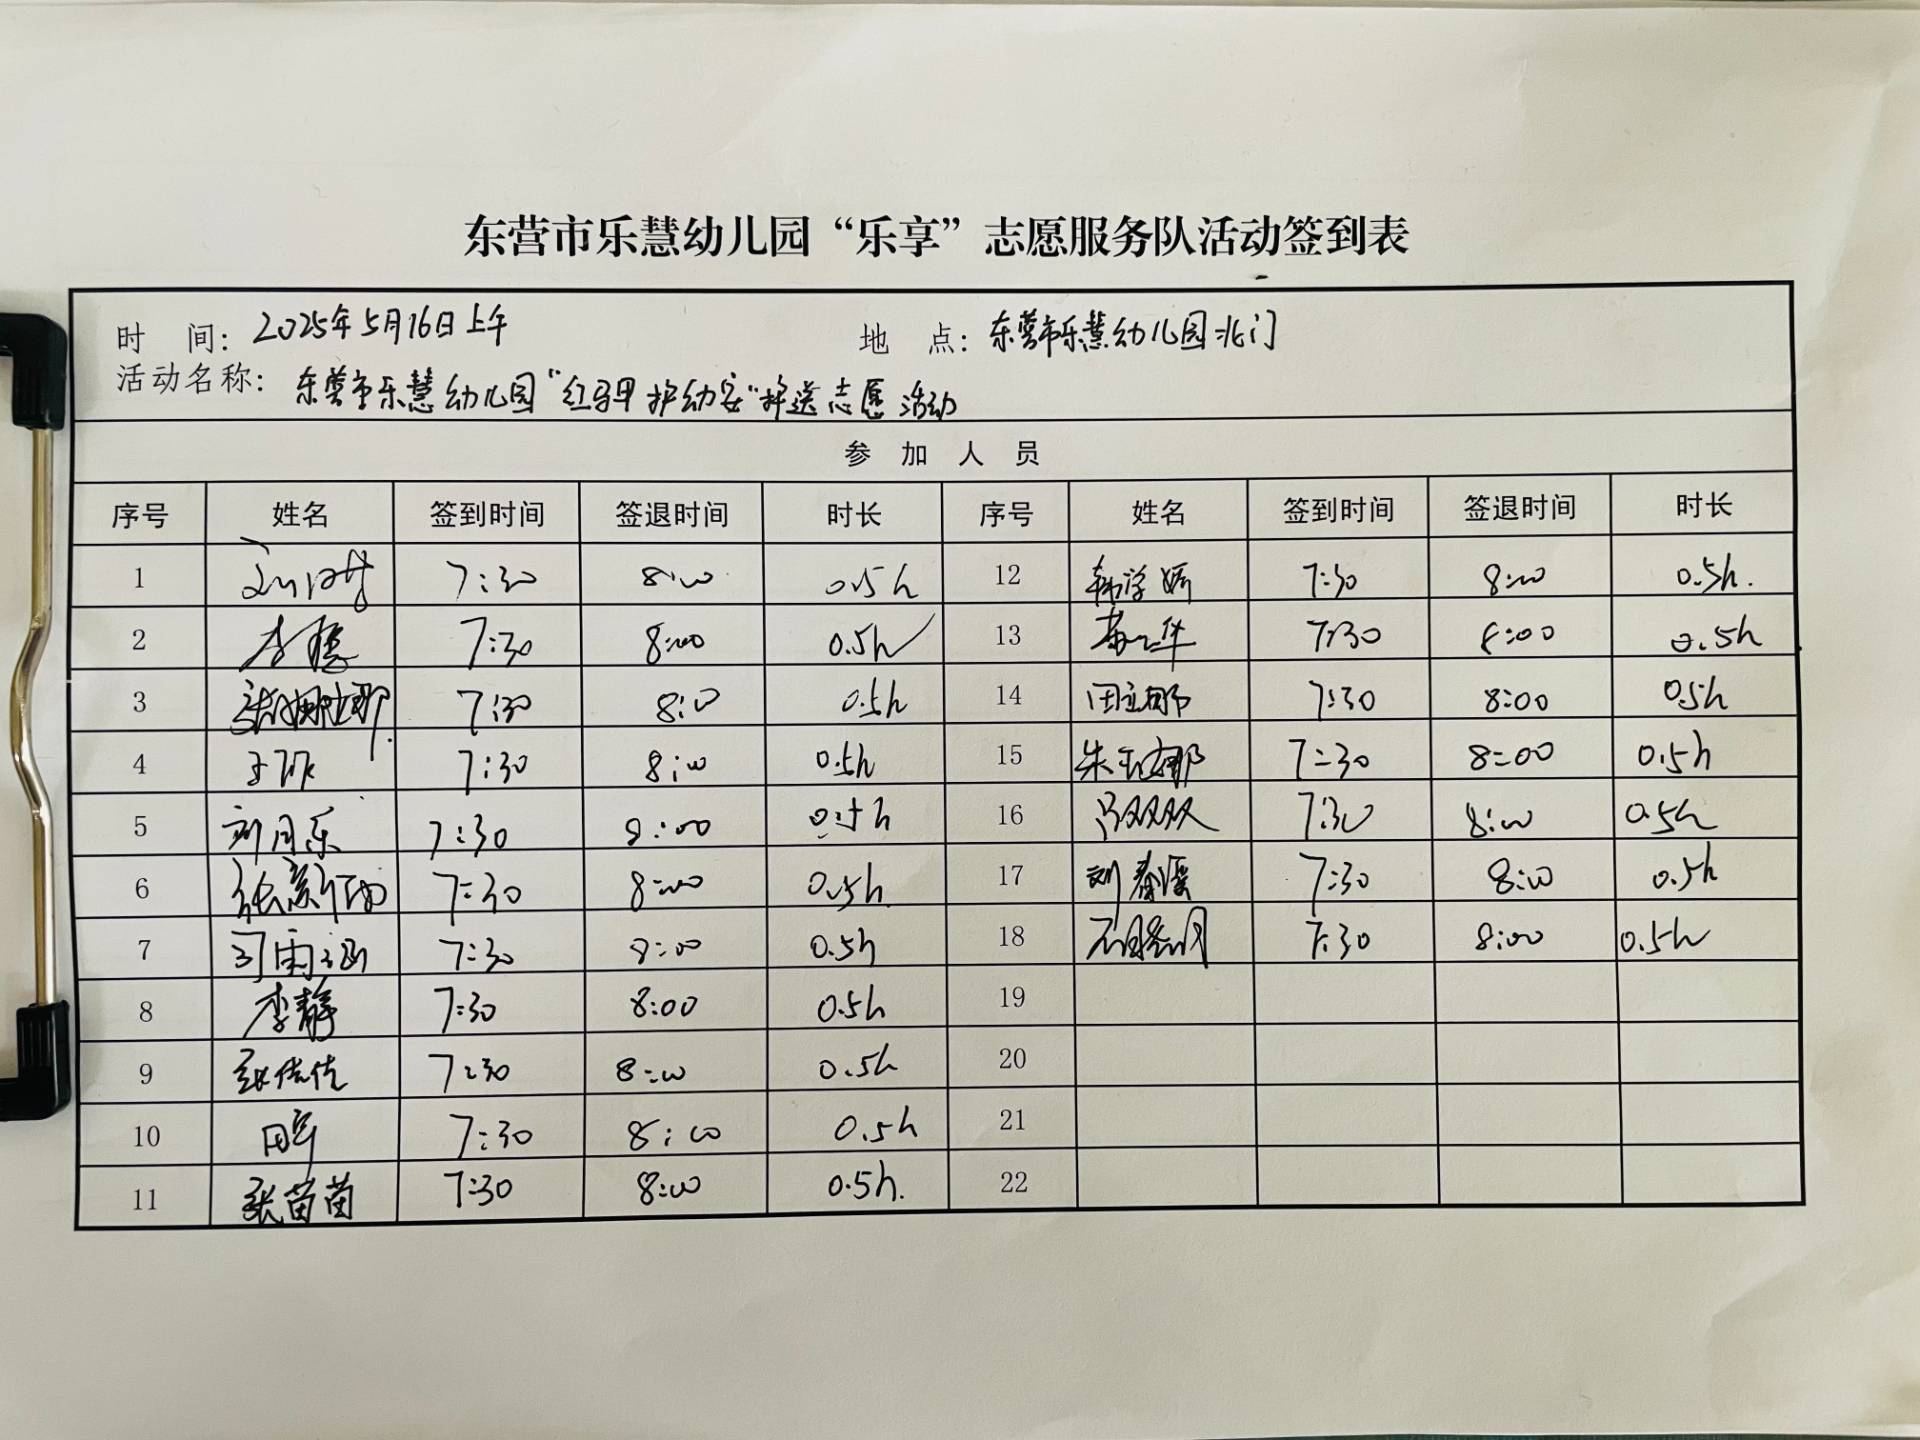 东营市乐慧幼儿园“乐享”志愿服务队活动签到表
时 间：2025年5月16日上午 地 点：东营市乐慧幼儿园北门
活动名称：东营市乐慧幼儿园“红马甲护幼安”护送志愿活动
参 加 人 员
序号 姓名 签到时间 签退时间 时长 序号 姓名 签到时间 签退时间 时长
1 7:30 8:00 0.5h 12 韩学娇 7:30 8:00 0.5h.
2 7:30 8:00 0.5h 13 7:30 8:00 0.5h
3 7:30 8:00 0.5h 14 田立娜 7:30 8:00 0.5h
4 7:30 8:00 0.5h 15 朱 娜 7:30 8:00 0.5h
5 刘月乐 7:30 8:00 0.5h 16 吕双双 7:30 8:00 0.5h
6 张 7:30 8:00 0.5h 17 刘春溪 7:30 8:00 0.5h
7 司雨涵 7:30 8:00 0.5h 18 7:30 8:00 0.5h
8 李静 7:30 8:00 0.5h 19
9 张佳佳 7:30 8:00 0.5h 20
10 7:30 8:00 0.5h 21
11 张苗苗 7:30 8:00 0.5h. 22